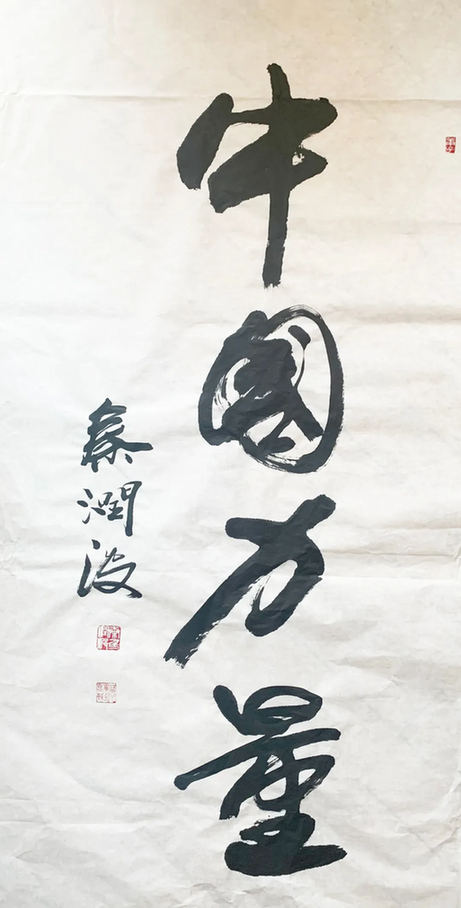 中国力量
秦润波